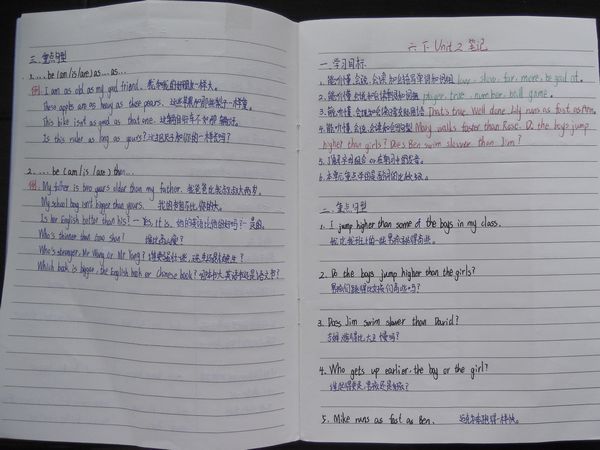 三. 重点句型
1. ... be (am/is/are) as...as...
例: I am as old as my good friend. 我和我的好朋友一样大.
These apples are as heavy as those pears. 这些苹果和那些梨子一样重.
This bike isn't as good as that one. 这辆自行车不如那辆好.
Is this ruler as long as yours? 这把尺子和你的一样长吗?
2. ... be (am/is/are) than...
例: My father is two years older than my 我爸爸比我叔叔大两岁.
My school bag isn't bigger than yours. 我的书包不比你的大.
Is her English better than his? - Yes, it is. 她的英语比他的好吗? - 是的.
Who's thinner than 谁比 瘦?
Who's stronger, Mr Wang or Mr Yang? 谁更强壮一些,
Which book is bigger, the English book or Chinese book? 哪本书大, 英语书还是语文书?
六下 Unit 2 笔记
一. 学习目标
1. 能听懂, 会说, 会读和会拼写单词和词组 low, slow, far, more, be good at.
2. 能听懂, 会说和会读单词和词组 player, true, number, ball game.
3. 能听懂, 会说和会读日常交际用语 That's true. Well done. Lily runs as fast as Mary.
4. 能听懂, 会说, 会读和会写句型 Mary walks faster than Rose. Do the boys jump
higher than girls? Does Ben swim slower than Jim?
5. 了解字母组合 or 在单词中的发音.
6. 本单元重点学的是副词的比较级.
二. 重点句型
1. I jump higher than some of the boys in my class.
我比我班上的一些男孩跳得高些.
2. Do the boys jump higher than the girls?
男孩们跳得比女孩们高些吗?
3. Does Jim swim slower than David?
吉姆游得比大卫慢吗?
4. Who gets up earlier, the boy or the girl?
谁起得更早, 男孩还是女孩?
5. Mike runs as fast as Ben. 迈克和本跑得一样快.